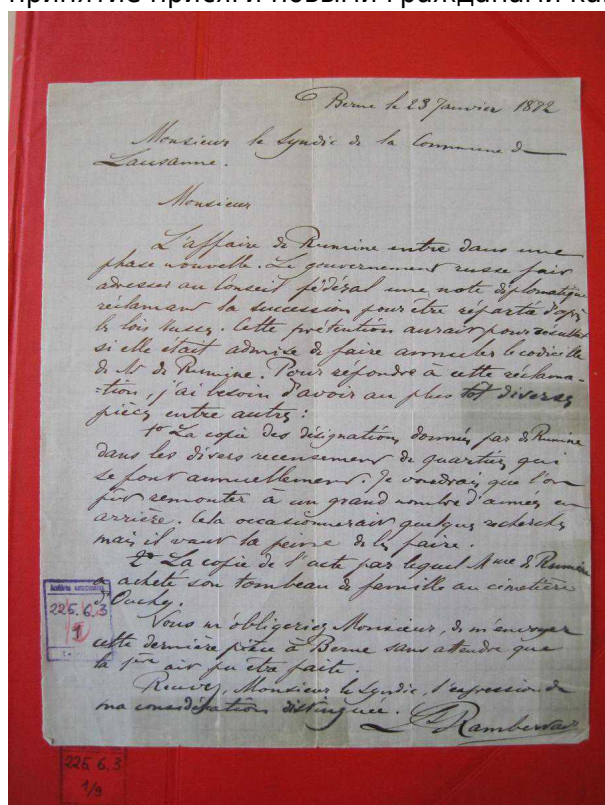 принятие присяги новыми гражданами ка
Berne le 23 Janvier 1872
Monsieur le Syndic de la Commune de
Lausanne.
Monsieur
L'affaire de Rumine entre dans une
phase nouvelle. Le gouvernement russe fait
adresser au Conseil fédéral une note diplomatique
réclamant la succession pour être répartie d'après
les lois russes. Cette prétention aurait pour résultat
si elle était admise de faire annuler le codicille
de Mr de Rumine. Pour répondre à cette réclama-
-tion, j'ai besoin d'avoir au plus tôt diverses
pièces entre autres :
1o La copie des désignations données par de Rumine
dans les divers recensement de quartiers qui
se font annuellement. Je voudrais que l'on
pût remonter à un grand nombre d'années en
arrière. Cela occasionnerait quelques recherches
mais il vaut la peine de les faire.
2o La copie de l'acte par lequel Mme de Rumine
a acheté son tombeau de famille au cimetière
d'Ouchy.
Vous m'obligeriez Monsieur, de m'envoyer
cette dernière pièce à Berne sans attendre que
la 1ère ait pu être faite.
Recevez, Monsieur le Syndic, l'expression de
ma considération distinguée.
Rambert
225.6.3
1
225.6.3
1/9